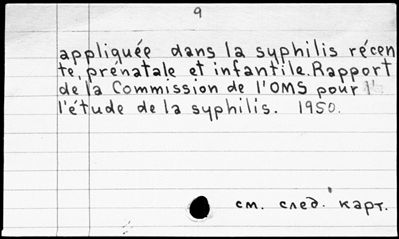 9
appliquée dans la syphilis récen
te, prénatale et infantile. Rapport
de la Commission de l'OMS pour l'
l'étude de la syphilis. 1950.
см. след. карт.